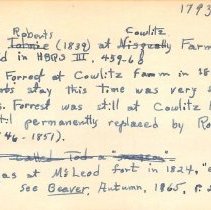 1793
Roberts Cowlitz
Tolmie (1839) at Nisqually Farm
d in HBRS III, 459-68
Forrest at Cowlitz farm in 18
bs stay this time was very s
s. Forrest was still at Cowlitz
til permanently replaced by Ro
46-1851).
as at McLeod fort in 1824, "
see Beaver, Autumn, 1965, p.